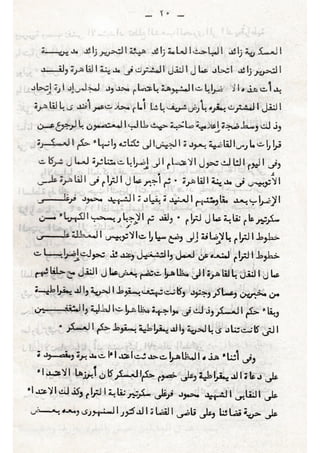 — ٢٠ —
العسكرية زائد المباحث العامة زائد هيئة التحرير زائد مديريـة
التحرير زائد اتحاد عمال النقل المشترك فى مدينة القاهرة ولقـد
بدأت هذه الاضرابات المشبوهة باعتصام محدود لمجلس إدارة إتحاد
النقل المشترك بمقره بأرض شريف باشا أمام محلات عمر أفندى بالقاهرة
وذلك وسط ضجة إعلامية صاخبة حيث طالب المعتصمون بالرجوع عن
قرارات مارس القاضية بعودة الجيش الى ثكناته وانهاء حكم العسكـرة
وفى اليوم الثالث تحول الاعتصام الى إضرابات متناثرة لعمال شركات
الأتوبيس فى مدينة القاهرة ٠ ثم أجبر عمال الترام فى القاهرة على
الإضراب بعد مقاومتهم العنيدة بقيادة الشهيد محمود فرغلـى
سكرتير عام نقابة عمال الترام ٠ ولقد تم الإجبار بسحب الكهرباء من
خطوط الترام بالإضافة إلى وضع سيارات الاتوبيس المعطلة علـى
خطوط الترام لمنعه عن العمل والتشغيل وعندئذ تحولت إضرابـات
عمال النقل بالقاهرة الى مظاهرات تضم بعض عمال النقل مع حلفائهم
من مخبرين وعساكر وجنود وكانت تهتف بسقوط الحرية والديمقراطية
وبقاء حكم العسكر وذلك فى مواجهة مظاهرات الطلبة والمثقفيـن
التى كانت تنادى بالحرية والديمقراطية بسقوط حكم العسكر ٠
وفى أثناء هذه المظاهرات حدثت اعتداءات مدبرة ومقصـودة
على دعاة الديمقراطية وعلى خصوم حكم العسكر كان أبرزها الاعتداء
على النقابى الشهيد محمود فرغلى سكرتير نقابة الترام وكذلك الاعتداء على
حرية قضائنا وعلى قاضى القضاة الدكتور السنهورى ومعه بعـض